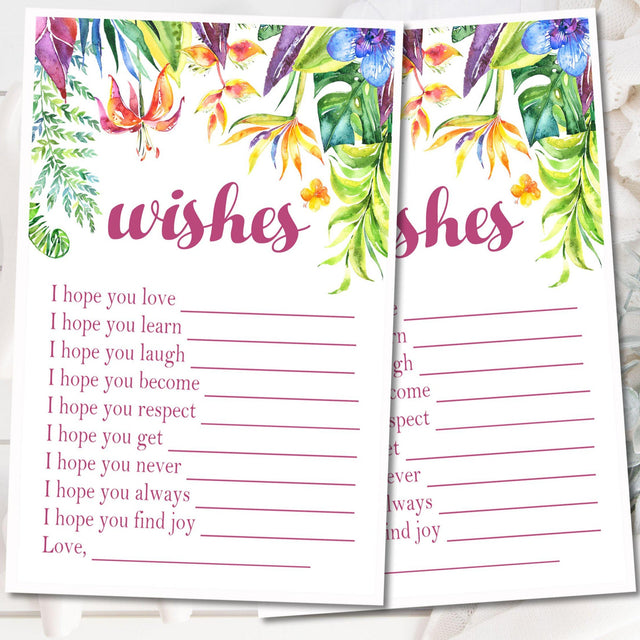 wishes
I hope you love
I hope you learn
I hope you laugh
I hope you become
I hope you respect
I hope you get
I hope you never
I hope you always
I hope you find joy
Love,
shes
rn
gh
come
spect
et
ever
lways
ind joy